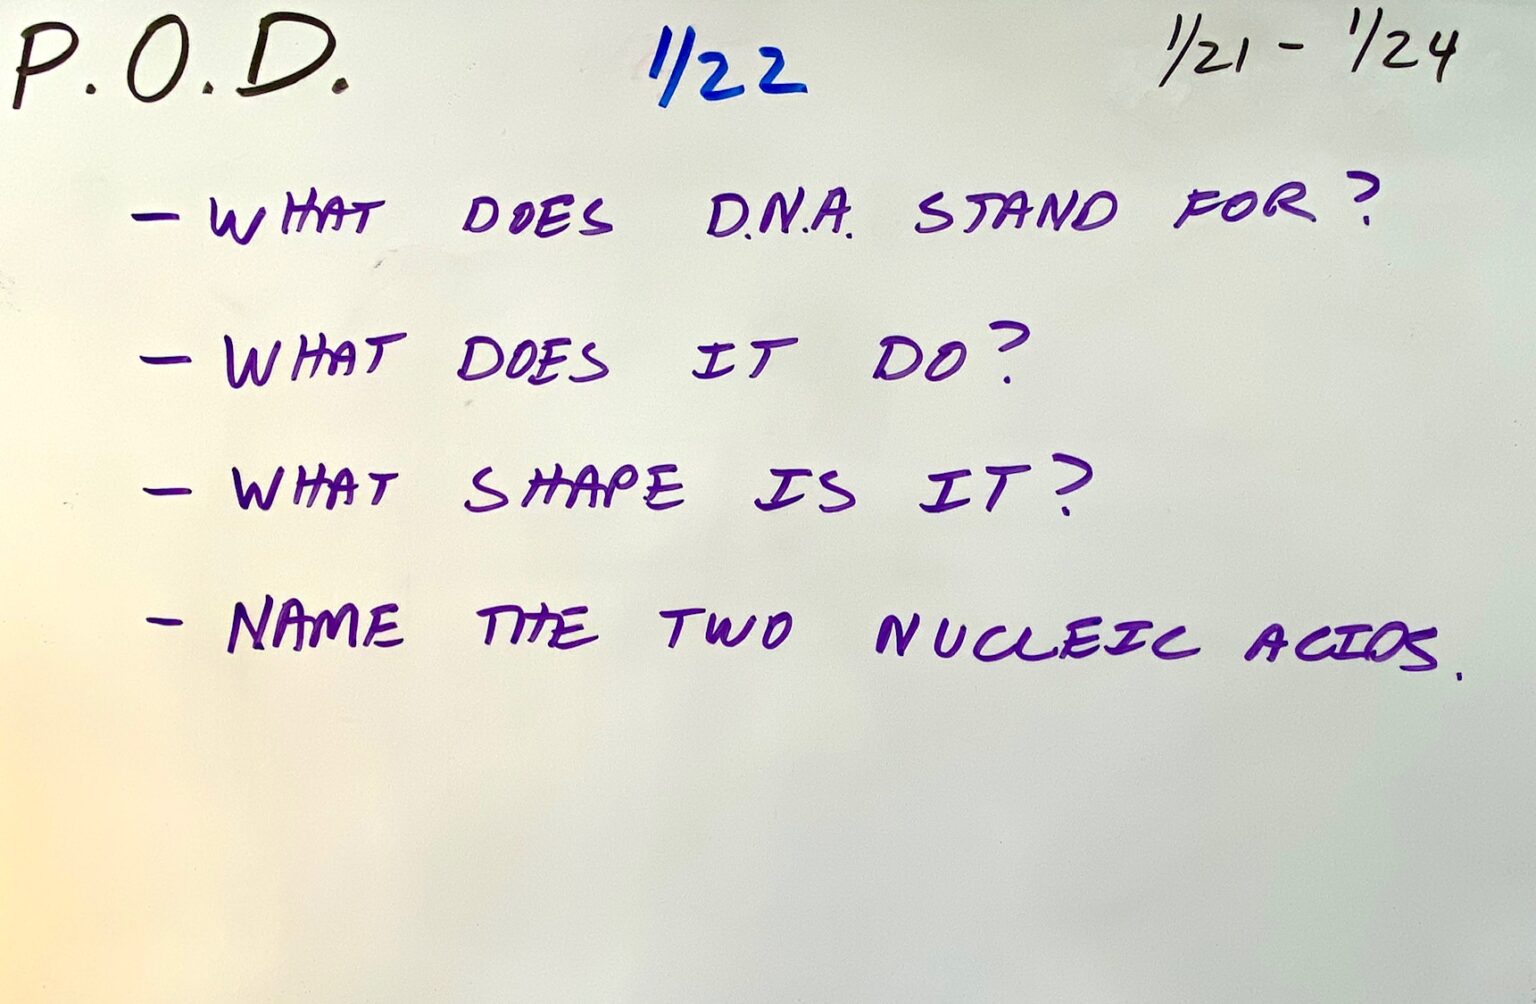 P.O.D. 1/22 1/21 - 1/24
- WHAT DOES D.N.A. STAND FOR?
- WHAT DOES IT DO?
- WHAT SHAPE IS IT?
- NAME THE TWO NUCLEIC ACIDS.